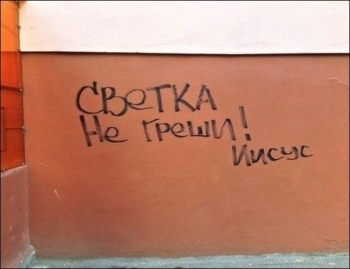 СВЕТКА
Не греши!
Иисус